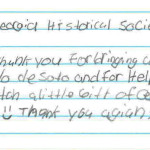 Georgia Historical Socie
thank you For bringing
to de soto and for Help
a little bit of Ge
Thank you again